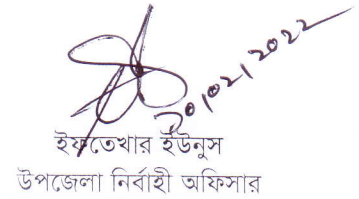 ২০/০২/২০২২
ইফতেখার ইউনুস
উপজেলা নির্বাহী অফিসার